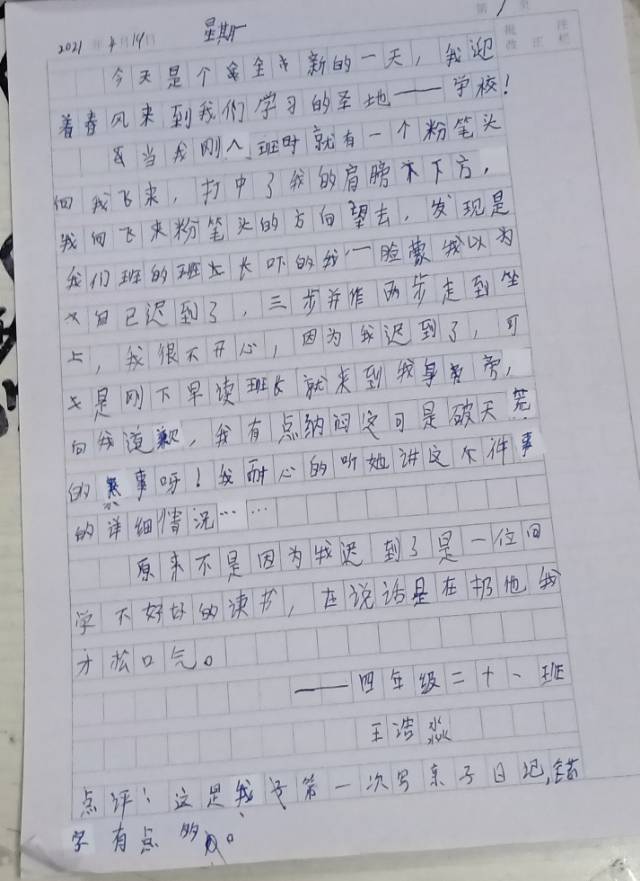 第1页
2021年4月19日 星期一
批改 订正 评栏
今天是个全新的一天，我迎
着春风来到我们学习的圣地——学校！
当我刚入班时就有一个粉笔头
向我飞来，打中了我的肩膀下方，
我向飞来粉笔头的方向望去，发现是
我们班的班长吓的我一脸蒙我以为
自己迟到了，三步并作两步走到坐
上，我很不开心，因为我迟到了，可
是刚下早读班长就来到我身旁，
向我道歉，我有点纳闷这可是破天荒
的事呀！我耐心的听她讲这个件事
的详细情况……
原来不是因为我迟到了是一位同
学不好好的读书，在说话是在扔他我
才松口气。
——四年级二十一班
王浩淼
点评：这是我第一次写亲子日记，错
字有点多。